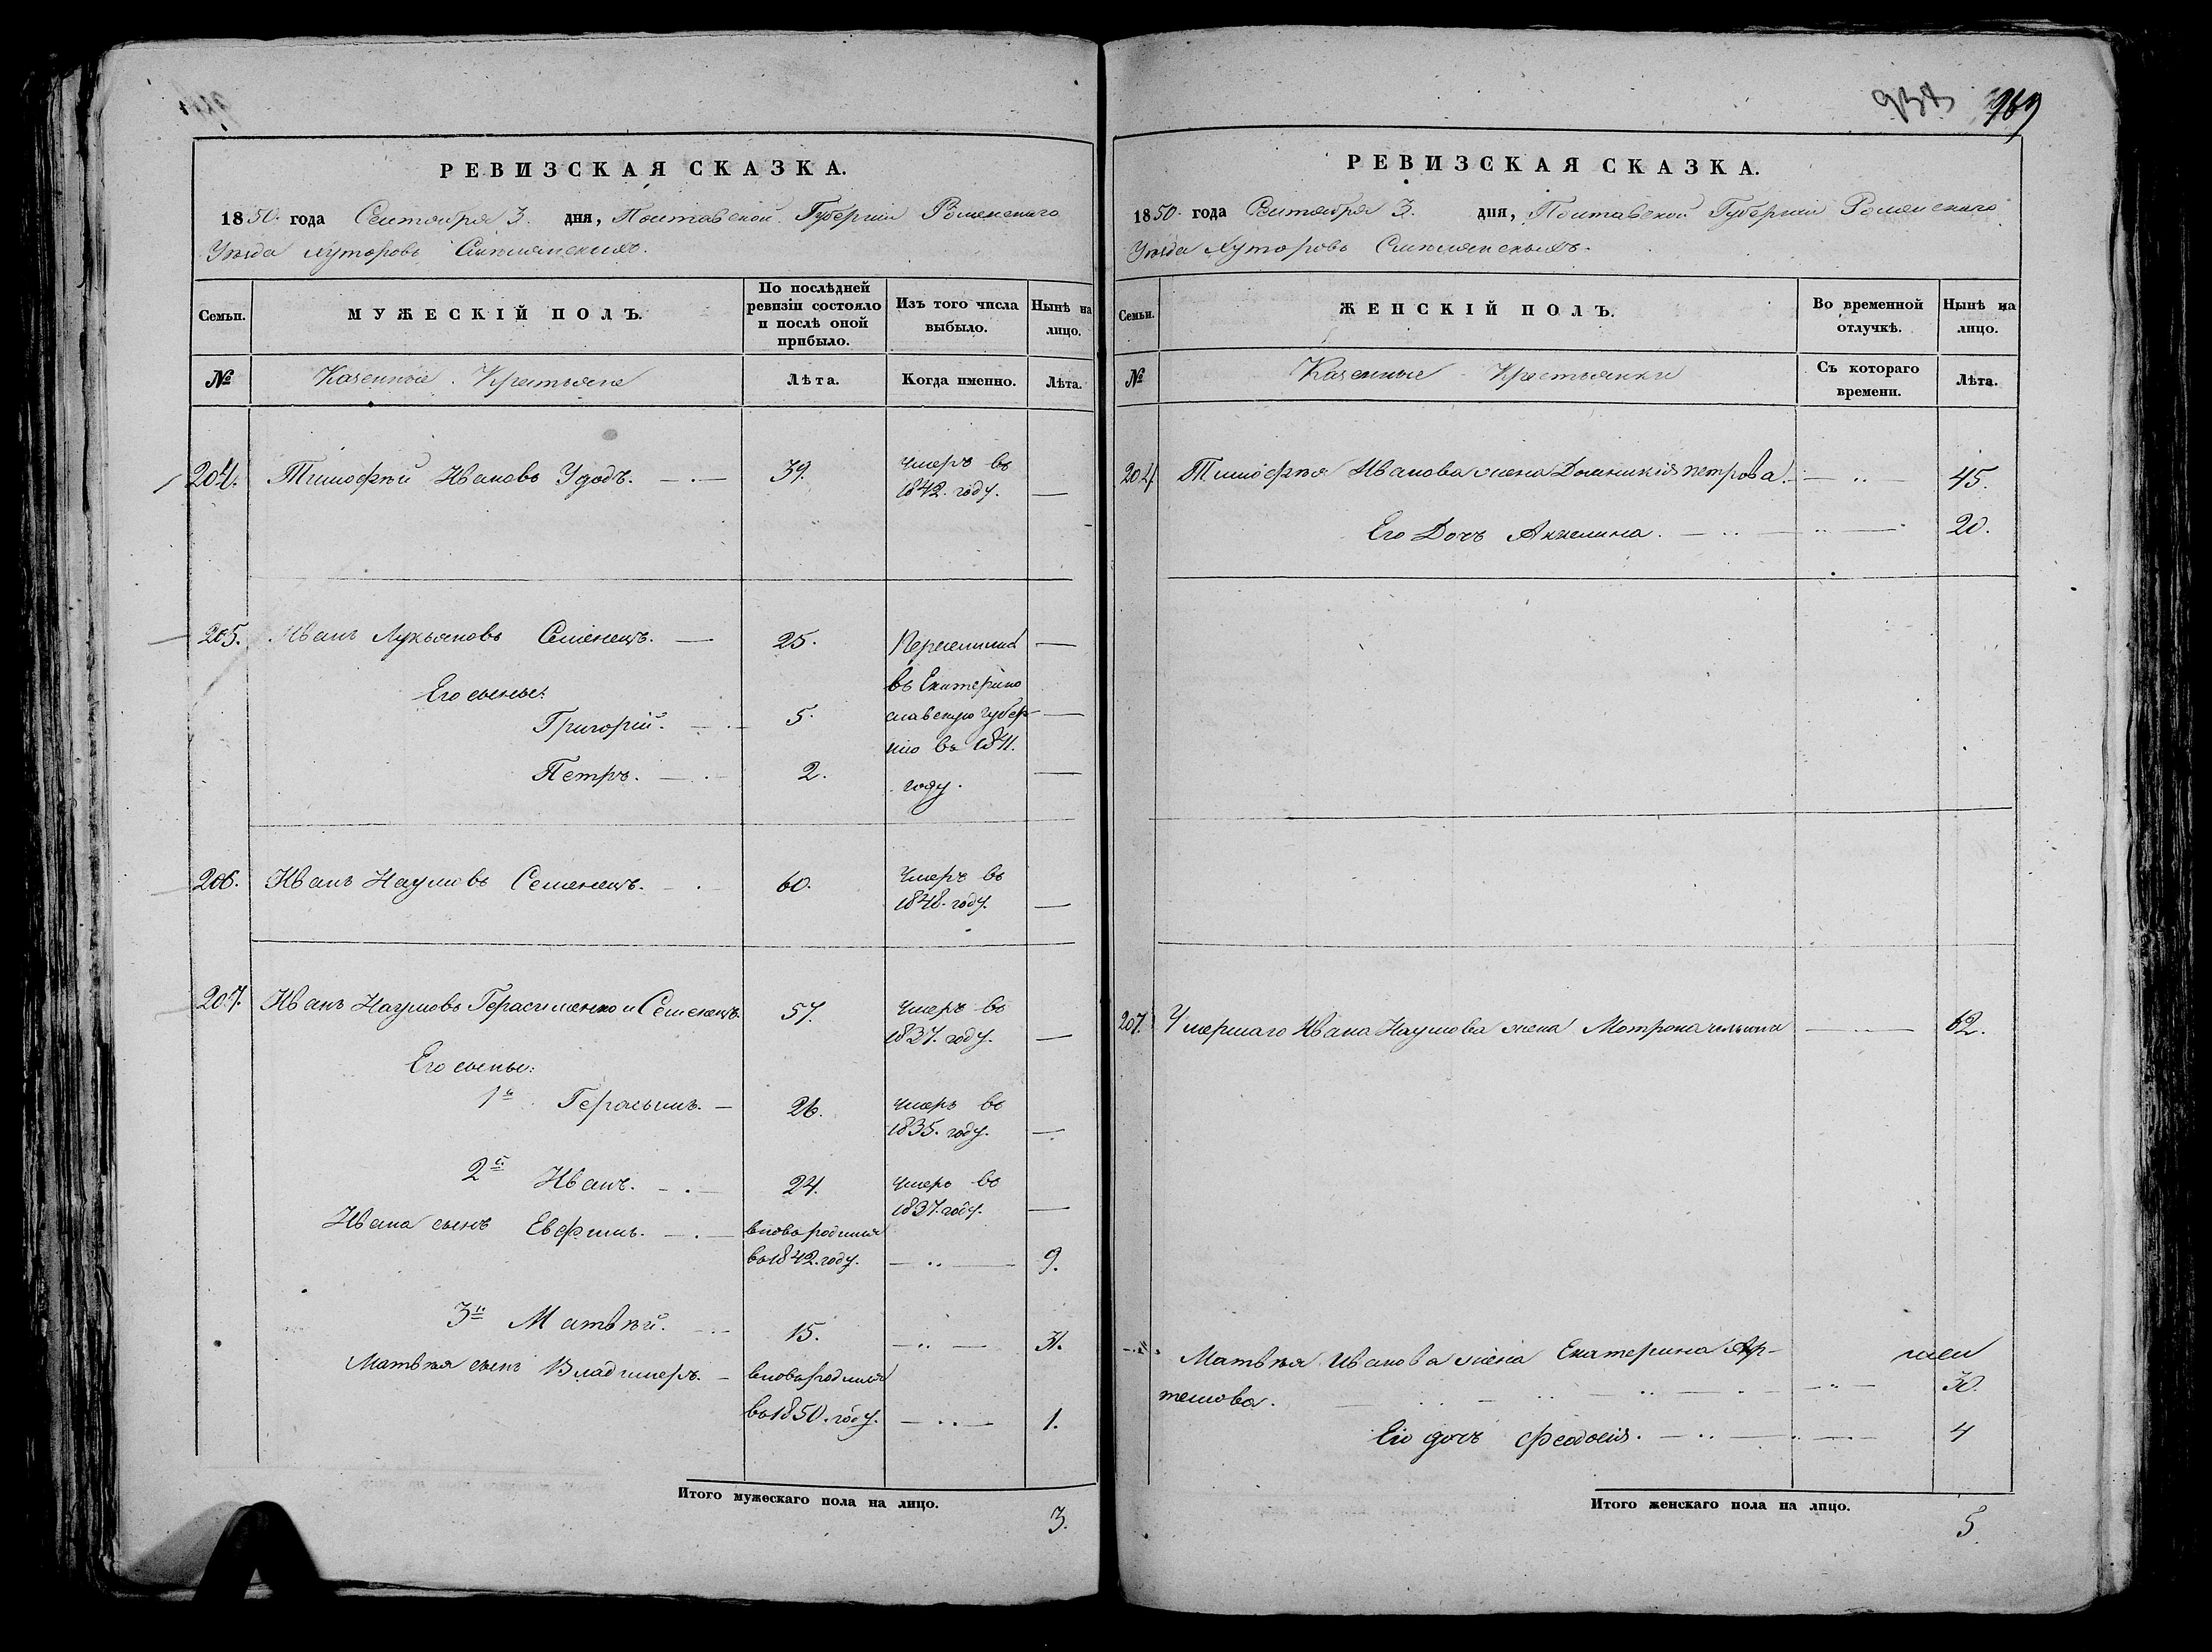 969
РЕВИЗСКАЯ СКАЗКА.
1850. года Сентября 3. дня, Полтавской Губерніи Роменскаго
Уезда хуторовъ
Семьи.
МУЖЕСКІЙ ПОЛЪ.
По послѣдней ревизіи состояло и послѣ оной прибыло.
Изъ того числа выбыло.
Нынѣ на лицо.
№
Казенные Крестьяне
Лѣта.
Когда именно.
Лѣта.
204. Тимофѣй Ивановъ Удодъ. — . — 39. умеръ въ
1842. году. —
205. Иванъ Лукьяновъ Семенецъ. — 25. Переселился —
Его сыны: въ Екатерино
Григорій. — . — 5. славскую губер- —
нію въ 1841.
Петръ. — . — 2. году. —
206. Иванъ Наумовъ Семенецъ. — . 60. Умеръ въ
1848. году. —
207. Иванъ Наумовъ Герасименко и Семенецъ. 57. умеръ въ
1837. году. —
Его сыны:
1й Герасимъ. — 26. умеръ въ
1835. году. —
2й Иванъ. — . — 24. умеръ въ
1837. году. —
Ивана сынъ Евфимъ. — . — вновь родился
въ 1842. году. — .. — 9.
3й Матвѣй. — . — 15. — .. — 31.
Матвѣя сынъ Владимеръ. — вновь родился
въ 1850. году. — .. — 1.
Итого мужескаго пола на лицо.
3.
РЕВИЗСКАЯ СКАЗКА.
1850. года Сентября 3. дня, Полтавской Губерніи Роменскаго
Уѣзда Хуторовъ
Семьи.
ЖЕНСКІЙ ПОЛЪ.
Во временной отлучкѣ.
Нынѣ на лицо.
№
Казенные Крестьянки
Съ котораго времени.
Лѣта.
204. Тимофѣя Иванова жена Домникія петрова. — .. — 45.
Его Дочъ Акилина. — .. — .. — 20.
207. Умершаго Ивана Наумова жена Мотрона — .. — 62.
Матвѣя Иванова жена Екатерина Ар-
темова. — .. — 30.
Его дочъ Феодосія. — .. — .. — 4
Итого женскаго пола на лицо.
5